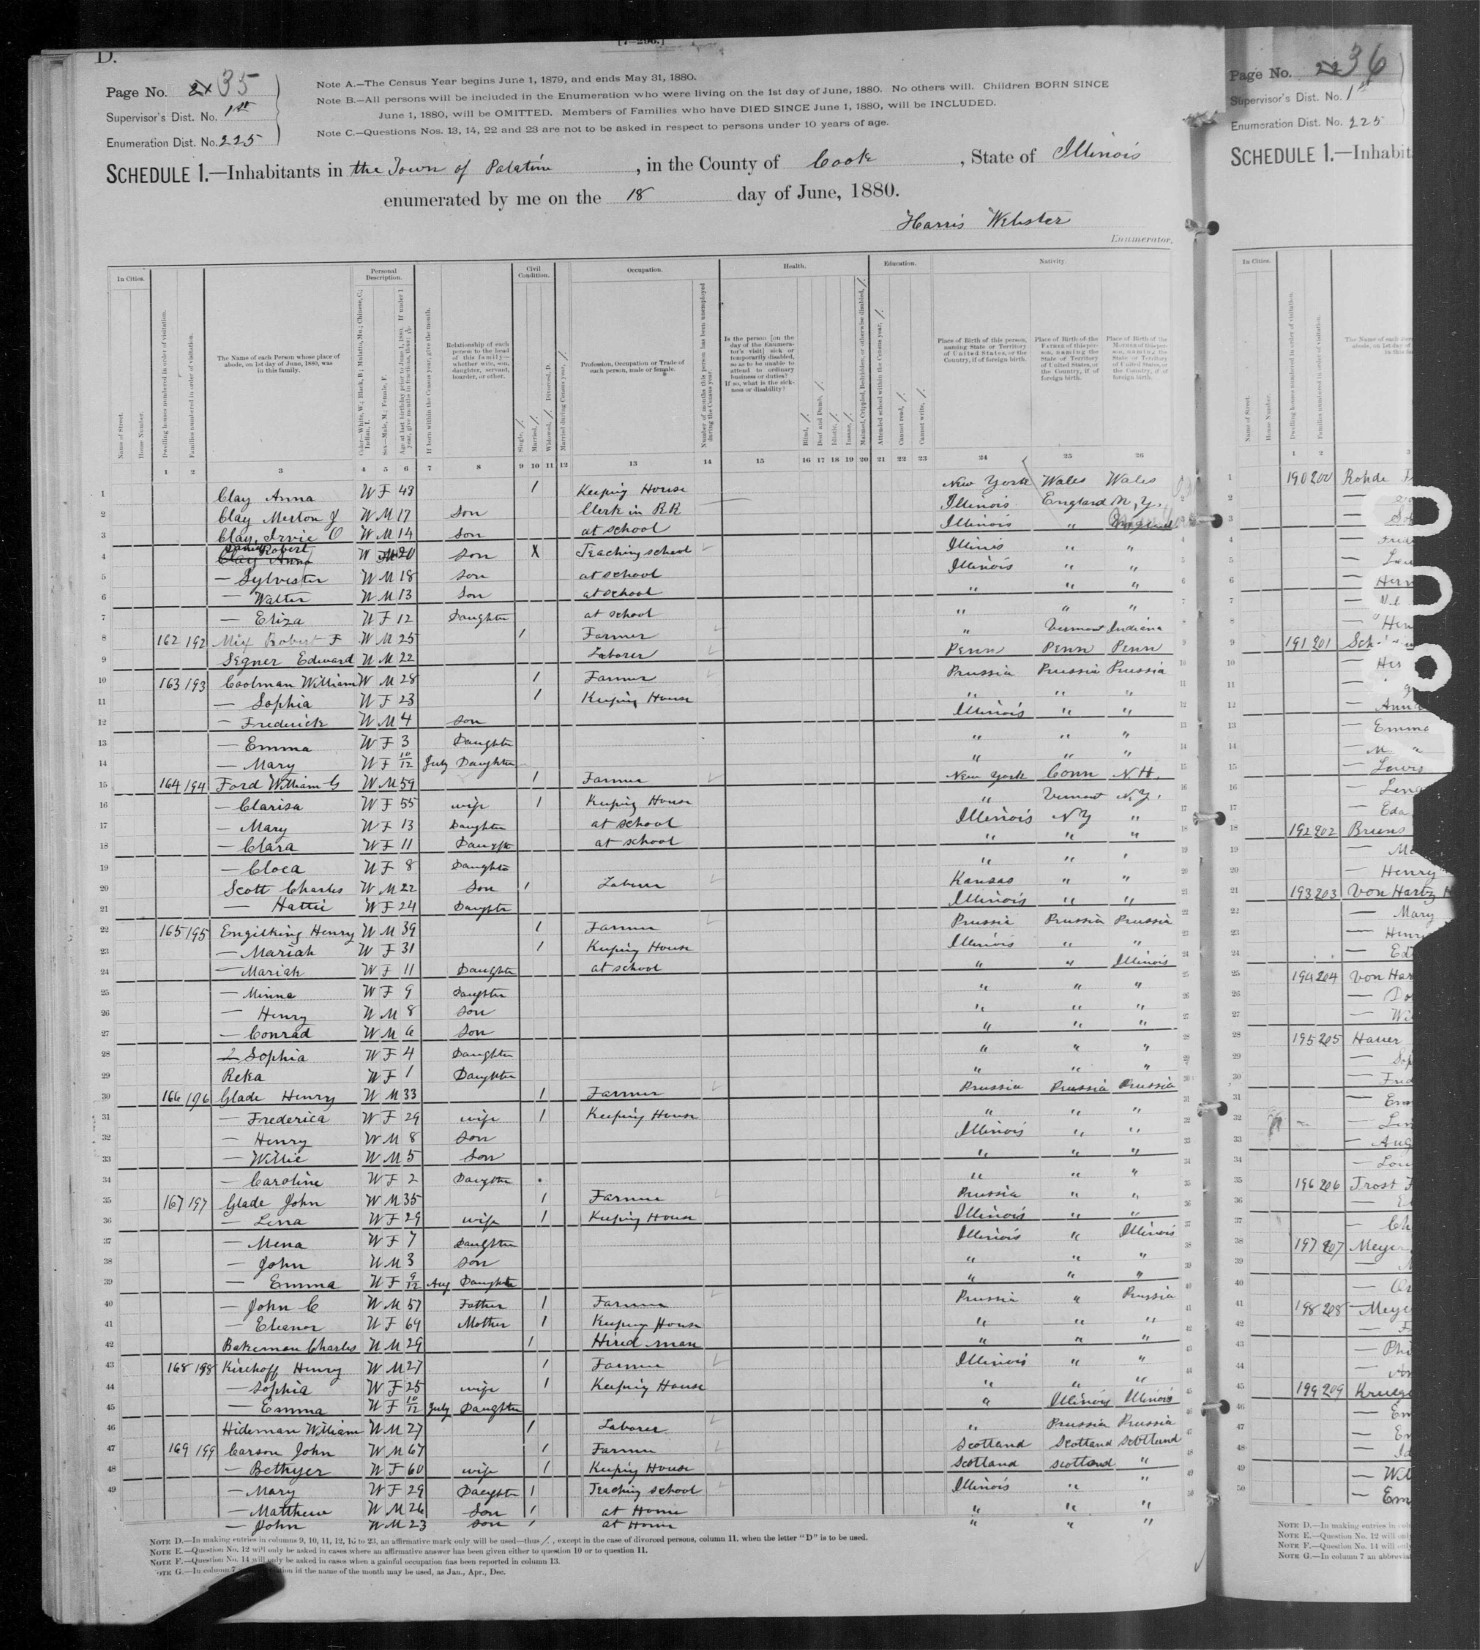 D.
[7-296.]
Page No. 35
Supervisor's Dist. No. 1st
Enumeration Dist. No. 225
Note A.—The Census Year begins June 1, 1879, and ends May 31, 1880.
Note B.—All persons will be included in the Enumeration who were living on the 1st day of June, 1880. No others will. Children BORN SINCE
June 1, 1880, will be OMITTED. Members of Families who have DIED SINCE June 1, 1880, will be INCLUDED.
Note C.—Questions Nos. 13, 14, 22 and 23 are not to be asked in respect to persons under 10 years of age.
SCHEDULE 1.—Inhabitants in the Town of Palatine, in the County of Cook, State of Illinois
enumerated by me on the 18 day of June, 1880.
Harris Webster
Enumerator.
In Cities. Personal Description. Civil Condition. Occupation. Health. Education. Nativity.
Name of Street. House Number. Dwelling houses numbered in order of visitation. Families numbered in order of visitation.
The Name of each Person whose place of abode, on 1st day of June, 1880, was in this family.
Relationship of each person to the head of this family—whether wife, son, daughter, servant, boarder, or other.
Profession, Occupation or Trade of each person, male or female.
1 2 3 4 5 6 7 8 9 10 11 12 13 14 15 16 17 18 19 20 21 22 23 24 25 26
1 Clay Anna W F 48 / Keeping House New York Wales Wales
2 Clay Merton J W M 17 Son Clerk in RR Illinois England N.Y.
3 Clay Irvie O W M 14 Son at school Illinois " England
4 Robert W M 20 Son X Teaching school Illinois " "
5 — Sylvester W M 18 Son at school Illinois " "
6 — Walter W M 13 Son at school " " "
7 — Eliza W F 12 Daughter at school " " "
8 162 192 Mix Robert F W M 25 / Farmer " Vermont Indiana
9 Segner Edward W M 22 Laborer Penn Penn Penn
10 163 193 Coolman William W M 28 / Farmer Prussia Prussia Prussia
11 — Sophia W F 23 / Keeping House " " "
12 — Frederick W M 4 Son Illinois " "
13 — Emma W F 3 Daughter " " "
14 — Mary W F 10/12 July Daughter " " "
15 164 194 Ford William G W M 59 / Farmer New York Conn N.H.
16 — Clarisa W F 55 wife / Keeping House " Vermont N.Y.
17 — Mary W F 13 Daughter at school Illinois N Y "
18 — Clara W F 11 Daughter at school " " "
19 — Cloca W F 8 Daughter " " "
20 Scott Charles W M 22 Son / Laborer Kansas " "
21 — Hattie W F 24 Daughter Illinois " "
22 165 195 Engilking Henry W M 39 / Farmer Prussia Prussia Prussia
23 — Mariah W F 31 / Keeping House Illinois " "
24 — Mariah W F 11 Daughter at school " " Illinois
25 — Minna W F 9 Daughter " " "
26 — Henry W M 8 Son " " "
27 — Conrad W M 6 Son " " "
28 — Sophia W F 4 Daughter " " "
29 Reka W F 1 Daughter " " "
30 166 196 Glade Henry W M 33 / Farmer Prussia Prussia Prussia
31 — Frederica W F 29 wife / Keeping House " " "
32 — Henry W M 8 Son Illinois " "
33 — Willie W M 5 Son " " "
34 — Caroline W F 2 Daughter " " "
35 167 197 Glade John W M 35 / Farmer Prussia " "
36 — Lena W F 29 wife / Keeping House Illinois " "
37 — Mena W F 7 Daughter Illinois " Illinois
38 — John W M 3 Son " " "
39 — Emma W F 9/12 Aug Daughter " " "
40 — John C W M 57 Father / Farmer Prussia " Prussia
41 — Eleanor W F 69 Mother / Keeping House " " "
42 Bakeman Charles W M 29 / Hired man " " "
43 168 198 Kirchoff Henry W M 27 / Farmer Illinois " "
44 — Sophia W F 25 wife / Keeping House " " "
45 — Emma W F 10/12 July Daughter " Illinois Illinois
46 Hideman William W M 27 / Laborer " Prussia Prussia
47 169 199 Carson John W M 67 / Farmer Scotland Scotland Scotland
48 — Bethyer W F 60 wife / Keeping House Scotland Scotland "
49 — Mary W F 29 Daughter / Teaching school Illinois " "
— Matthew W M 26 Son / at Home " " "
— John W M 23 Son / at Home " " "
NOTE D.—In making entries in columns 9, 10, 11, 12, 16 to 23, an affirmative mark only will be used—thus /, except in the case of divorced persons, column 11, when the letter "D" is to be used.
NOTE E.—Question No. 12 will only be asked in cases where an affirmative answer has been given either to question 10 or to question 11.
NOTE F.—Question No. 14 will only be asked in cases when a gainful occupation has been reported in column 13.
NOTE G.—In column 7 the name of the month may be used, as Jan., Apr., Dec.
Page No. 36
Supervisor's Dist. No. 1st
Enumeration Dist. No. 225
SCHEDULE 1.—Inhabit
In Cities.
190 200 Rohde
191 201
Anna
Emma
Lewis
Eda
192 202 Bruns
Henry
193 203 Von Hartz
— Mary
194 204 Von Har
195 205 Hauer
196 206 Trost
197 207 Meyer
198 208 — Meye
199 209 Kruege
NOTE D.—In making entries in
NOTE E.—Question No. 12 will
NOTE F.—Question No. 14 will only
NOTE G.—In column 7 an abbrevia